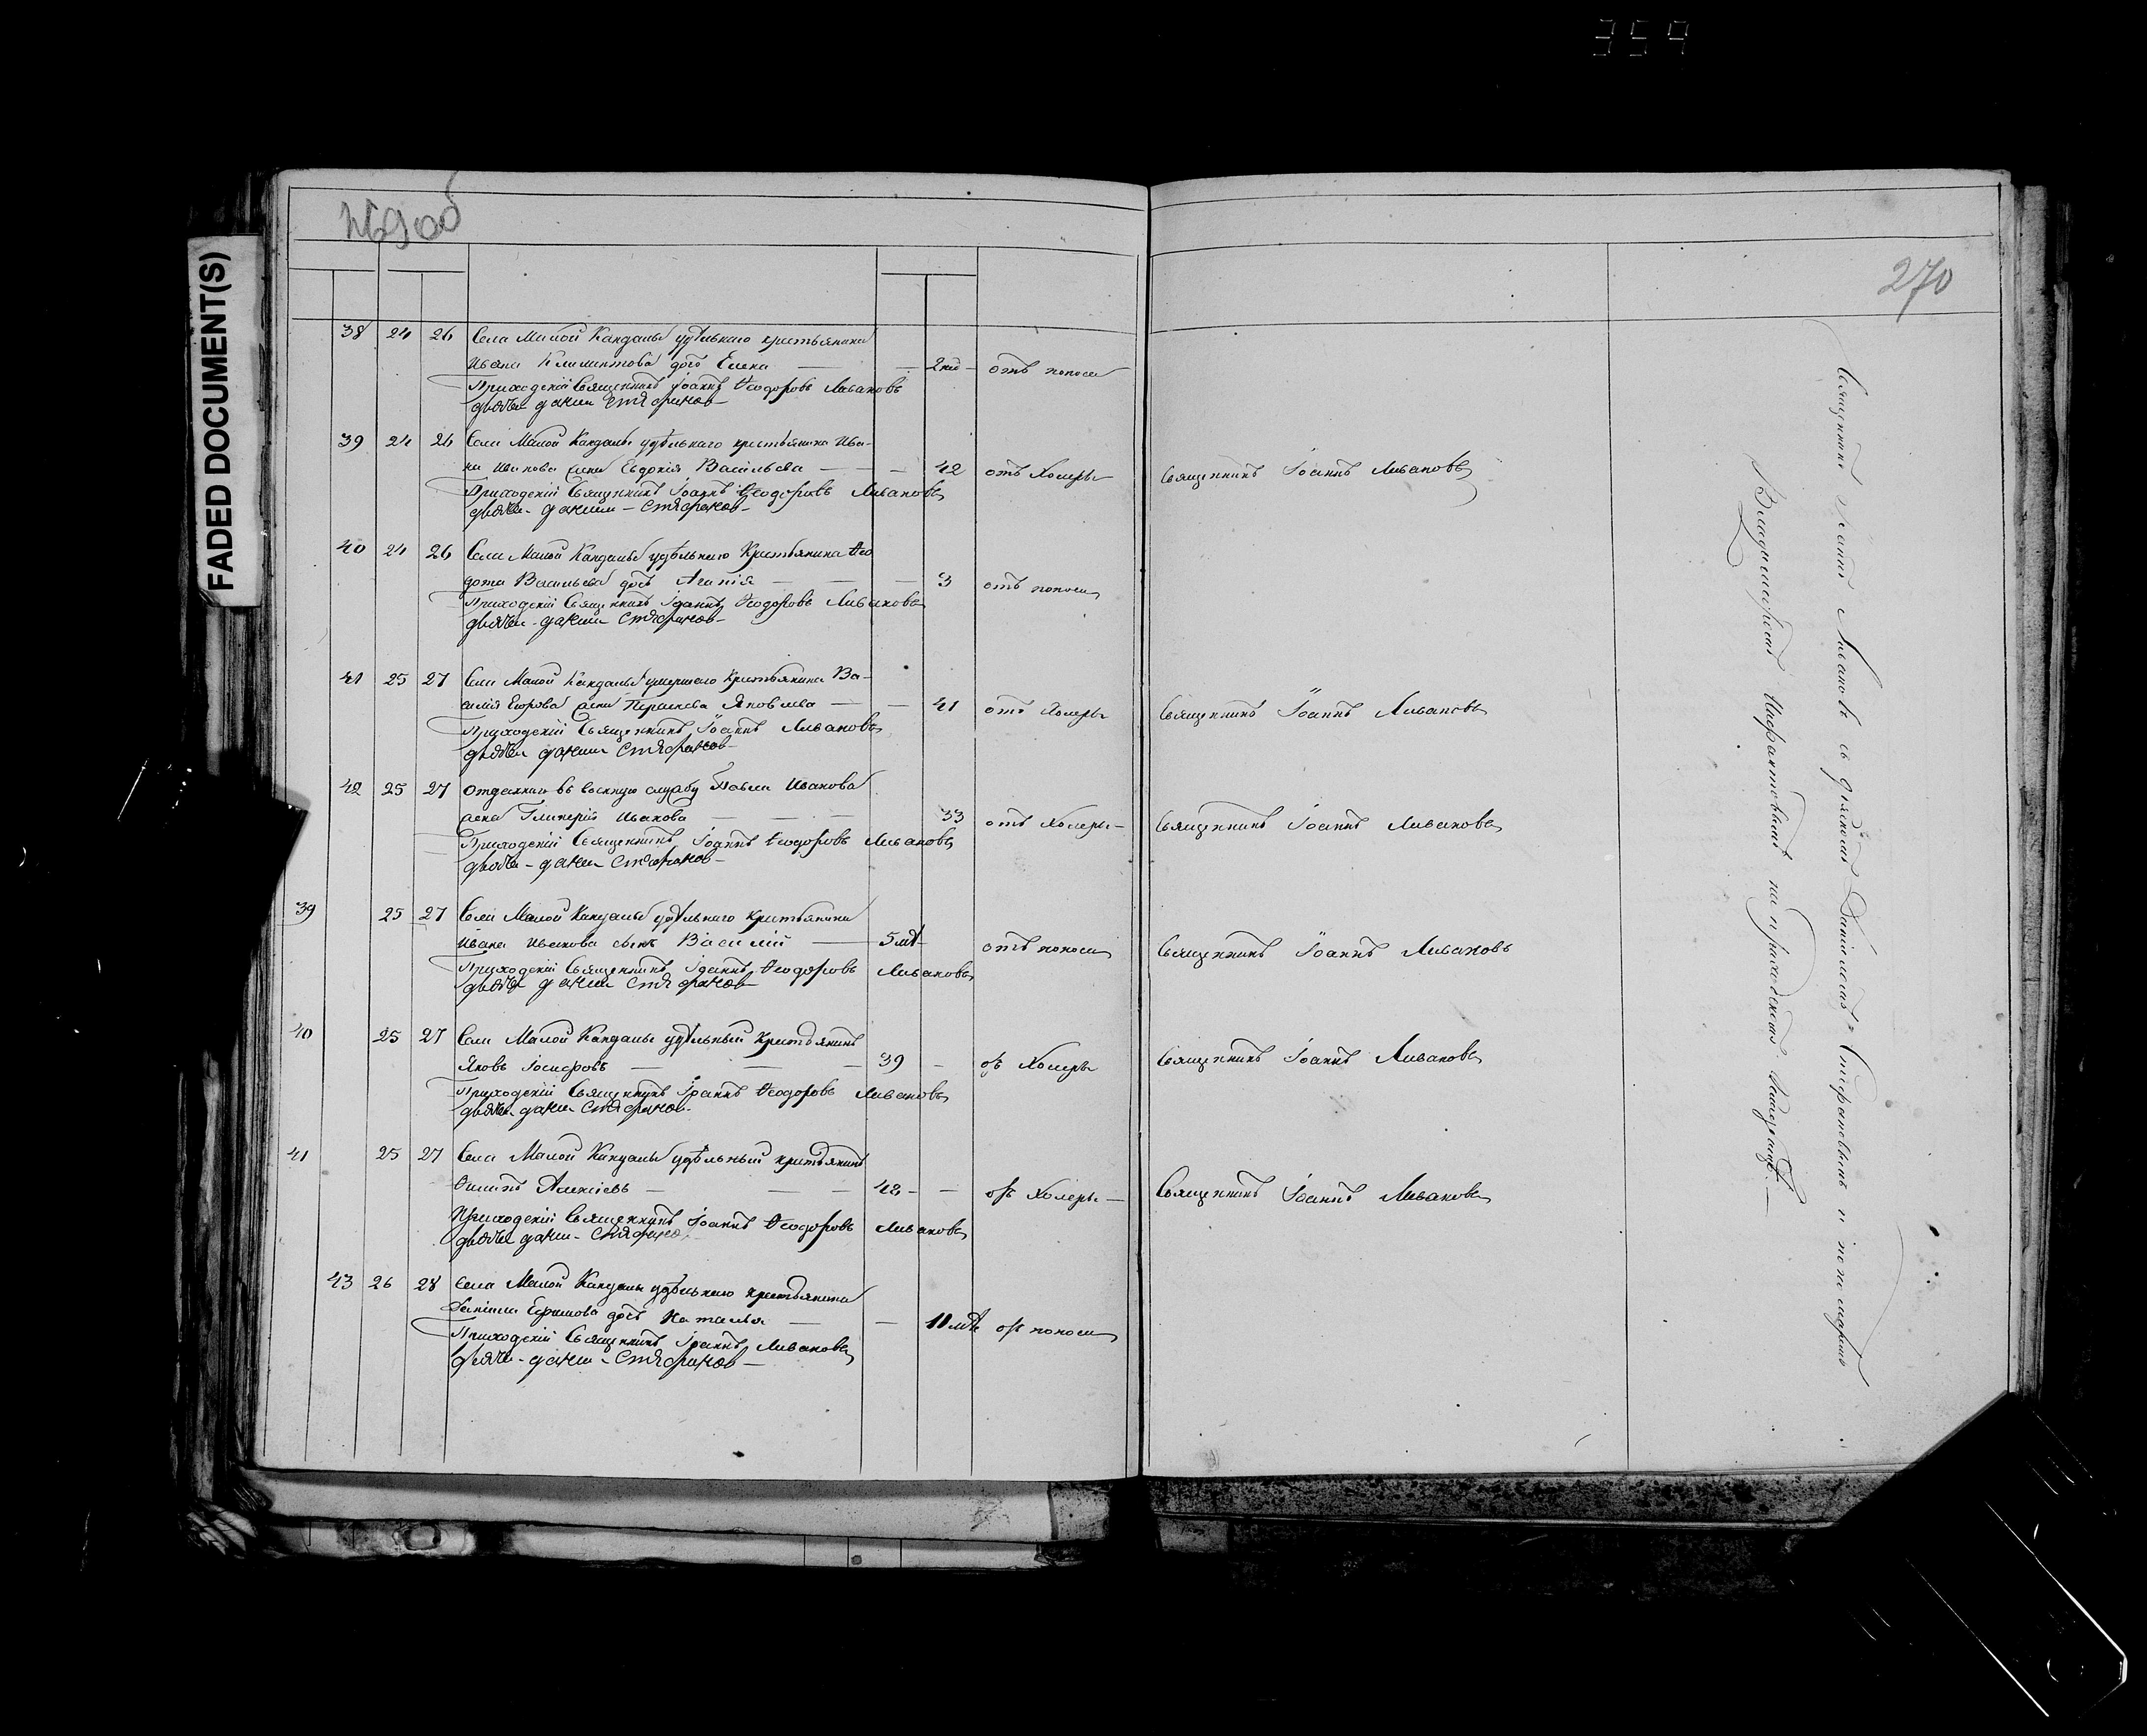 359
FADED DOCUMENT(S)
269об
270
38 24 26 Села Малой Кандалы удѣльнаго крестьянина
Ивана Климентова дочь Елена — — 2 нед — отъ поноса
Приходскій Священникъ Іоаннъ Ѳеодоровъ Ливановъ
дьячекъ данил Стафанов
39 24 26 Села Малой Кандалы удѣльнаго крестьянина Ива-
на Иванова жена Евдокія Васильева — — — 42 отъ Холеры Священникъ Іоаннъ Ливановъ
Приходскій Священникъ Іоаннъ Ѳеодоровъ Ливановъ
дьячек данил Стафанов
40 24 26 Села Малой Кандалы удѣльнаго Крестьянина Ѳео
дота Васильева дочь Агапія — — — 3 отъ поноса
Приходскій Священникъ Іоаннъ Ѳеодоровъ Ливановъ
дьячек данил Стафанов
41 25 27 Села Малой Кандалы умершаго Крестьянина Ва-
силія Егорова жена Параскева Яковлева — — 41 отъ Холеры Священникъ Іоаннъ Ливановъ
Приходскій Священникъ Іоаннъ Ливановъ
дьячек данил Стафанов
42 25 27 Отданнаго въ военную службу Павла Иванова
жена Гликерія Иванова — — — 33 отъ Холеры — Священникъ Іоаннъ Ливановъ
Приходскій Священникъ Іоаннъ Ѳеодоровъ Ливановъ
дьячек данил Стафанов
39 25 27 Села Малой Кандалы удѣльнаго Крестьянина
Ивана Иванова сынъ Василій — 5 лѣт отъ поноса Священникъ Іоаннъ Ливановъ
Приходскій Священникъ Іоаннъ Ѳеодоровъ Ливановъ
дьячек данил Стафанов
40 25 27 Села Малой Кандалы удѣльный Крестьянинъ
Яковъ Іосифовъ — — — 39 - отъ Холеры Священникъ Іоаннъ Ливановъ
Приходскій Священникъ Іоаннъ Ѳеодоровъ Ливановъ
дьячек данил Стафанов
41 25 27 Села Малой Кандалы удѣльный крестьянинъ
Алексіевъ — — — 42 - — отъ Холеры — Священникъ Іоаннъ Ливановъ
Приходскій Священникъ Іоаннъ Ѳеодоровъ Ливановъ
дьячек данил Стафанов
43 26 28 Села Малой Кандалы удѣльнаго крестьянина
Даніила Ефимова дочь Наталья — — 11 отъ поноса
Приходскій Священникъ Іоаннъ Ливановъ
дьячек данил Стафанов —
Священникъ Іоаннъ Ливановъ съ дьячкомъ Даніиломъ и пономаремъ
на приходскомъ кладбищѣ. —